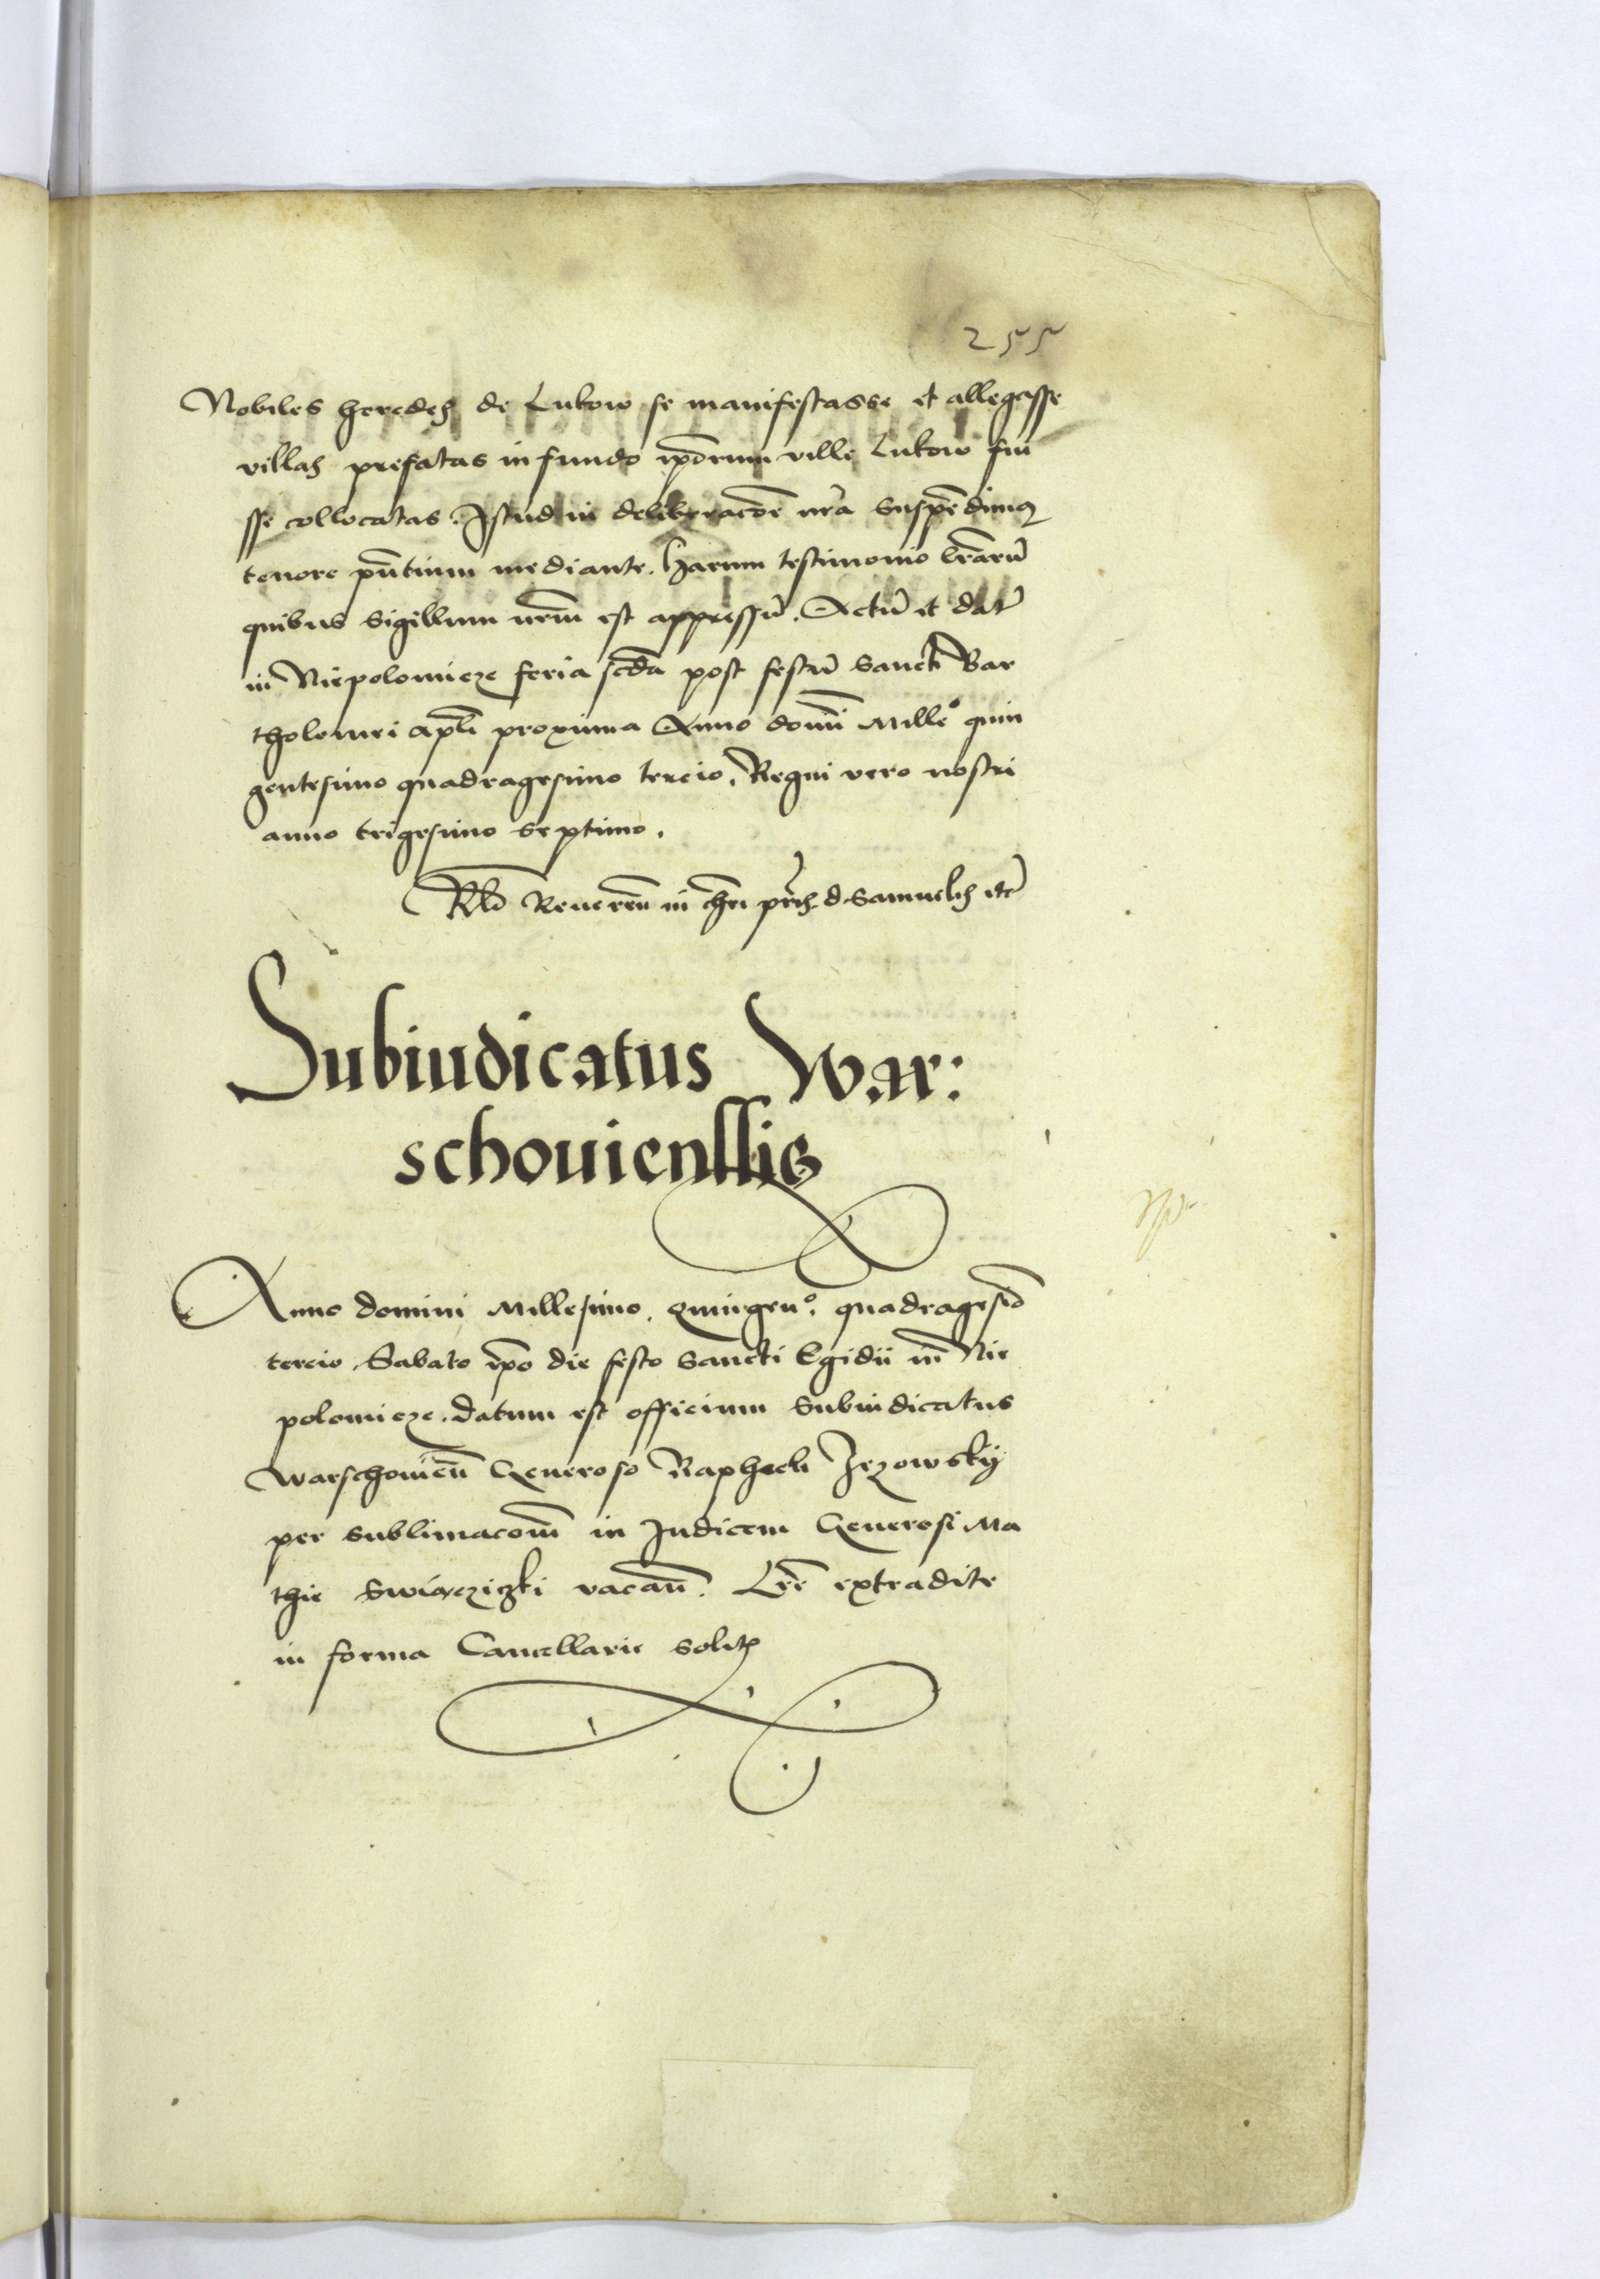 255
Nobiles heredes de Lukow se manifestasse et allegasse
villas prefatas in fundo ipõrum ville Lukow fui
sse collocatas. Istud in deliberacõe nrã suspẽdimus
tenore pñtium mediante. Harum testimonio lrãrũ
quibus sigillum nrẽm est appressũ. Actũ et datũ
in Niepolomicze feria scđa post festũ Sancti Bar
tholomei apłi proxima Anno domĩ Mille° quin
gentesimo quadragesimo tercio. Regni vero nostri
anno trigesimo septimo.
Rło Reuereñ in chrõ prĩs d Samuelis etc̃
Subiudicatus War:
schouienssis
Anno domini Millesimo. Quingen°. quadragesiõ
tercio. Sabato ipõ die festo Sancti Egidii in Nie
polomicze. datum est officium Subiudicatus
Warschouieñ Generoso Raphaeli Jezowskÿ
per sublimacoẽm in Judicem Generosi Ma
thie Swiącziczki vacañ. Lrẽ extradite
in forma Cancellarie solita